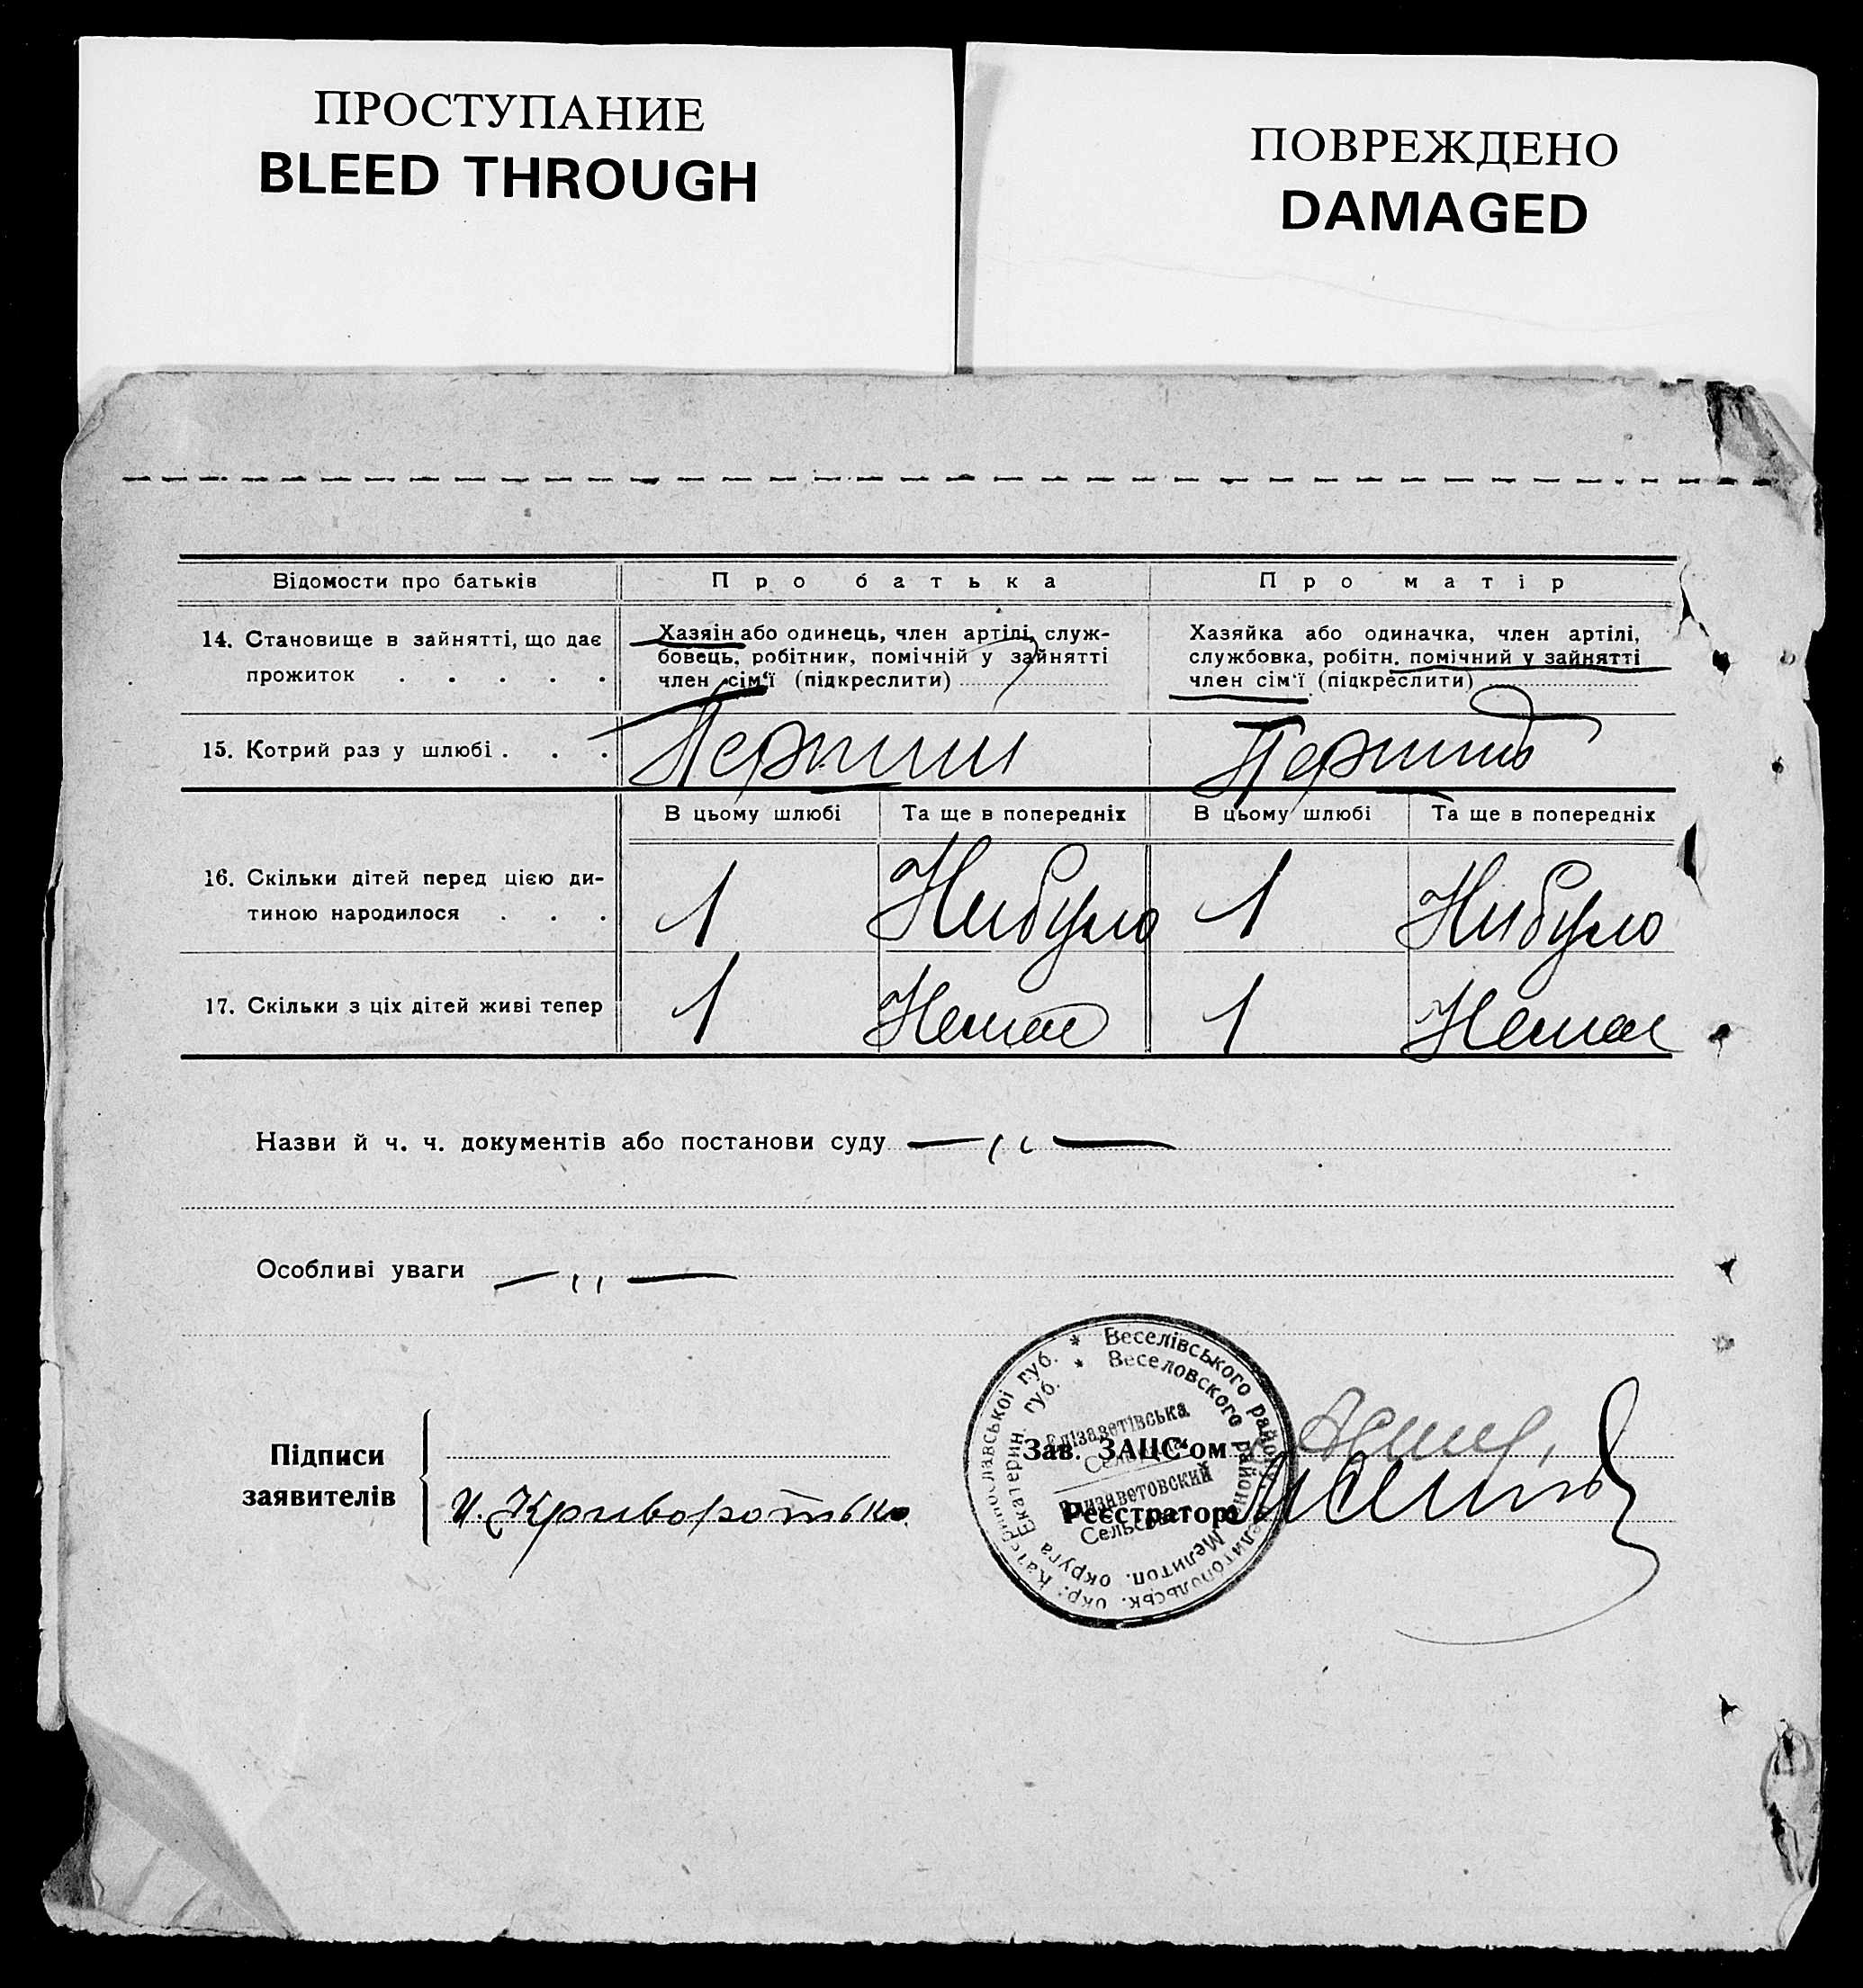 ПРОСТУПАНИЕ
BLEED THROUGH
ПОВРЕЖДЕНО
DAMAGED
Відомости про батьків
Про батька
Про матір
14. Становище в зайнятті, що дає
прожиток . . . . .
Хазяін або одинець, член артілі, служ-
бовець, робітник, помічній у зайнятті
член сім'ї (підкреслити)
Хазяйка або одиначка, член артілі,
службовка, робітн. помічний у зайнятті
член сім'ї (підкреслити)
15. Котрий раз у шлюбі . . .
Перший
В цьому шлюбі
Та ще в попередніх
В цьому шлюбі
Та ще в попередніх
16. Скільки дітей перед цією ди-
тиною народилося . . .
1
Нибуло
1
Нибуло
17. Скільки з ціх дітей живі тепер
1
Немає
1
Немає
Назви й ч. ч. документів або постанови суду — ,, —
Особливі уваги — ,, —
Підписи
заявителів
И. Криворотько
Зав. ЗАЦС'ом
Реєстратор
* Веселівського району Мелитопольськ. окр. Катеринославської губ.
* Веселовского района Мелитоп. округа Екатерин. губ.
Єлізаветівська
Елизаветовский